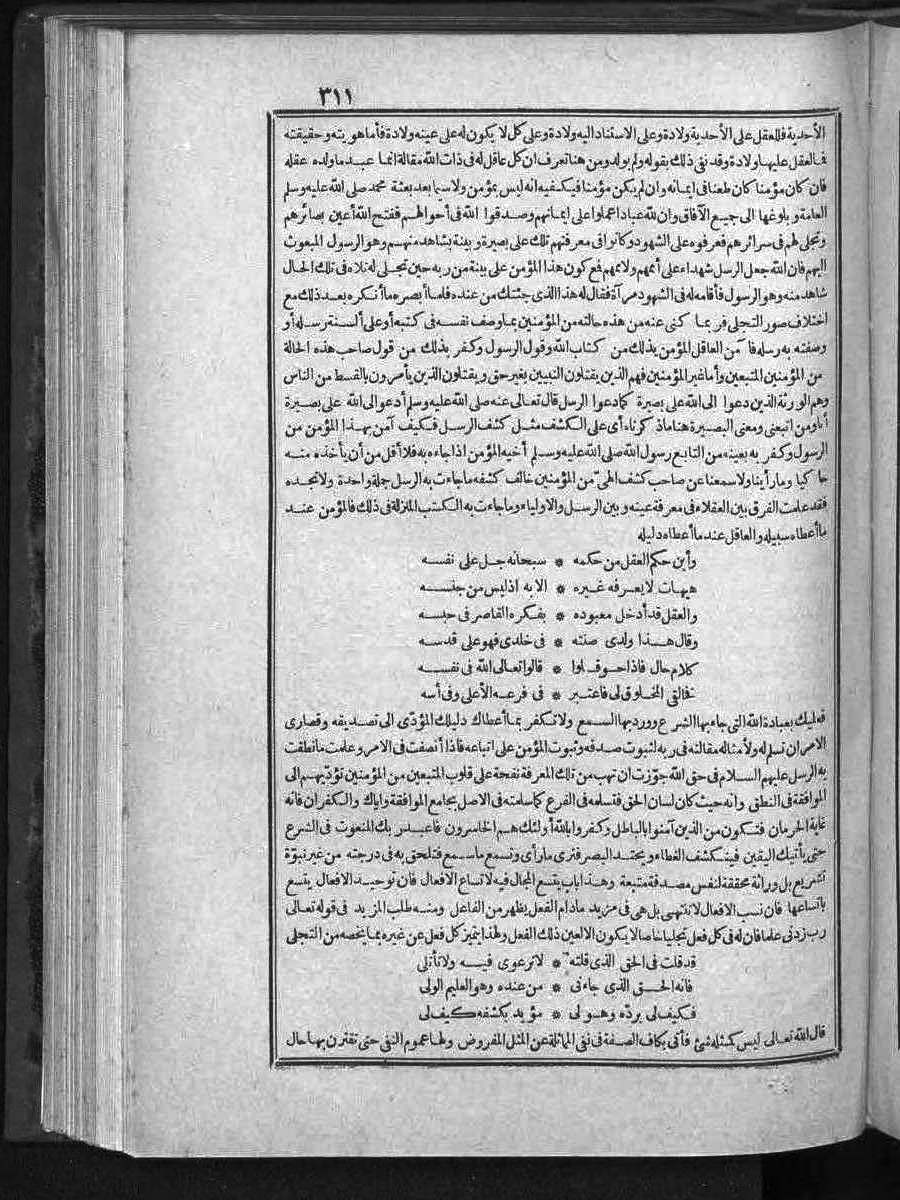 ٣١١
الأحدية فللعقل على الأحدية ولادة وعلى الاستناد اليه ولادة وعلى كل لا يكون له على عينه ولادة فأما هويته وحقيقته
فالعقل عليها ولادة وقد نفى ذلك بقوله ولم يولد ومن هنا تعرف ان كل عاقل له فى ذات الله مقالة انما عبد ما ولده عقله
فان كان مؤمنا كان طعنا فى ايمانه وان لم يكن مؤمنا فيكفيه انه ليس بمؤمن ولا سيما بعد بعثة محمد صلى الله عليه وسلم
العامة وبلوغها الى جميع الآفاق وان لله عبادا عملوا على ايمانهم وصدقوا الله فى أحوالهم ففتح الله أعين بصائرهم
وتجلى لهم فى سرائرهم فعرفوه على الشهود وكانوا فى معرفتهم تلك على بصيرة وبينة بشاهد منهم وهو الرسول المبعوث
اليهم فان الله جعل الرسل شهداء على أممهم ولاممهم فمع كون هذا المؤمن على بينة من ربه حين تجلى له تلاه فى تلك الحال
شاهد منه وهو الرسول فأقامه له فى الشهود مرآة فقال له هذا الذى جئتك من عنده فلما أبصره ما أنكره بعد ذلك مع
اختلاف صور التجلى فربما كنى عنه من هذه حالته من المؤمنين بما وصف نفسه فى كتبه أو على ألسنة رسله أو
وصفته به رسله فآمن العاقل المؤمن بذلك من كتاب الله وقول الرسول وكفر بذلك من قول صاحب هذه الحالة
من المؤمنين المتبعين وأما غير المؤمنين فهم الذين يقتلون النبيين بغير حق ويقتلون الذين يأمرون بالقسط من الناس
وهم الورثة الذين دعوا الى الله على بصيرة كما دعوا الرسل قال تعالى عنه صلى الله عليه وسلم أدعو الى الله على بصيرة
أنا ومن اتبعنى ومعنى البصيرة هنا ما ذكرناه أى على الكشف مثل كشف الرسل فكيف آمن بهذا المؤمن من
الرسول وكفر به بعينه من التابع رسول الله صلى الله عليه وسلم أخيه المؤمن اذا جاءه به فلا أقل من أن يأخذه منه
حاكيا وما رأينا ولا سمعنا عن صاحب كشف الهىّ من المؤمنين خالف كشفه ما جاءت به الرسل جملة واحدة ولا تجده
فقد علمت الفرق بين العقلاء فى معرفة عينه وبين الرسل والاولياء وما جاءت به الكتب المنزلة فى ذلك فالمؤمن عند
ما أعطاه سبيله والعاقل عند ما أعطاه دليله
وأين حكم العقل من حكمه * سبحانه جل على نفسه
هيهات لا يعرفه غيره * الا به اذ ليس من جنسه
والعقل قد أدخل معبوده * بفكره القاصر فى حبسه
وقال هذا ولدى صنته * فى خلدى فهو على قدسه
كلام حال فاذا حوقلوا * قالوا تعالى الله فى نفسه
خالقى المخلوق لى فاعتبر * فى فرعه الأعلى وفى أسه
فعليك بعبادة الله التى جاء بها الشرع وورد بها السمع ولا تكفر بما أعطاك دليلك المؤدّى الى تصديقه وقصارى
الامر ان تسلم له ولأمثاله مقالته فى ربه لثبوت صدقه وثبوت المؤمن على اتباعه فاذا أنصفت فى الامر وعلمت ما نطقت
به الرسل عليهم السلام فى حق الله جوّزت ان تهب من تلك المعرفة نفحة على قلوب المتبعين من المؤمنين تؤدّيهم الى
الموافقة فى النطق وانه حيث كان لسان الحق فتسلمه فى الفرع كما سلمته فى الاصل بجامع الموافقة واياك والكفران فانه
غاية الحرمان فتكون من الذين آمنوا بالباطل وكفروا بالله أولئك هم الخاسرون فاعبد ربك المنعوت فى الشرع
حتى يأتيك اليقين فينكشف الغطاء ويحتد البصر فترى ما رأى وتسمع ما سمع فتلحق به فى درجته من غير نبوّة
تشريع بل وراثة محققة لنفس مصدقة متبعة وهذا باب يتسع المجال فيه لاتساع الافعال فان توحيد الافعال يتسع
باتساعها فان نسب الافعال لا تنتهى بل هى فى مزيد ما دام الفعل يظهر من الفاعل ومنه طلب المزيد فى قوله تعالى
رب زدنى علما فان له فى كل فعل تجليا خاصا لا يكون الا لعين ذلك الفعل ولهذا يتميز كل فعل عن غيره بما يخصه من التجلى
قد قلت فى الحق الذى قلته * لا ترعوى فيه ولا تأتلى
فانه الحق الذى جاءنى * من عنده وهو العليم الولى
فكيف لى برده وهو لى * مؤيد بكشفه كيف لى
قال الله تعالى ليس كمثله شئ فأتى بكاف الصفة فى نفى المماثلة عن المثل المفروض ولها عموم النفى حتى تقترن بها حال